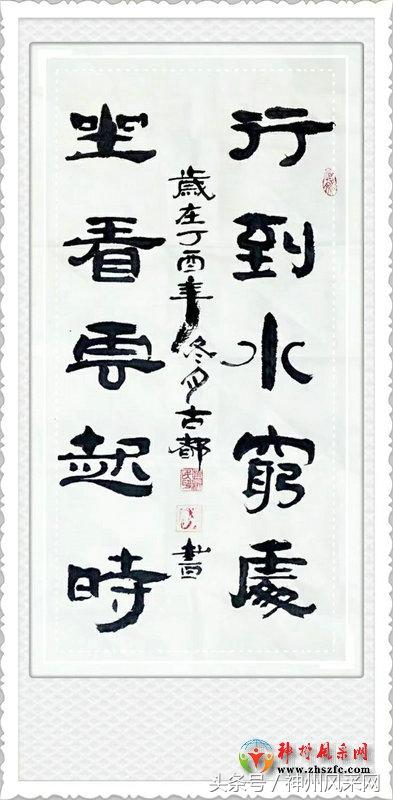 行到水窮處
坐看雲起時
歲在丁酉年冬月古都
書
神州风采网
www.zhszfc.cn
头条号／神州风采网